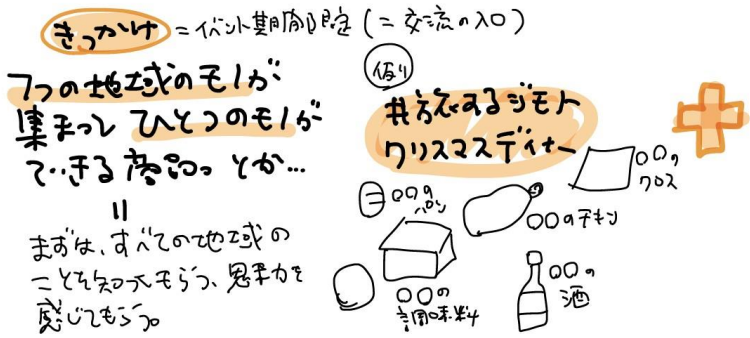 きっかけ = イベント期間限定 (= 交流の入口)
7つの地域のモノが
集まって ひとつのモノが
できる商品っ とか…
=
まずは、すべての地域の
ことを知ってもらう、魅力を
感じてもらう。
仮り
#旅するジモト
クリスマスディナー
○○の
パン
○○のチキン
○○の
クロス
○○の
調味料
○○の
酒